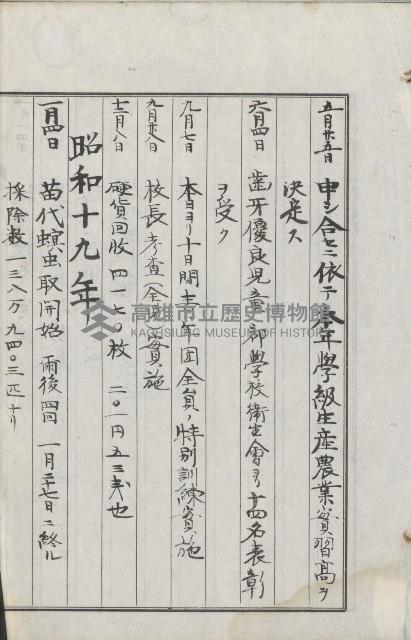 五月廿五日　申シ合セニ依テ各年學級生産農業實習高ヲ
決定ス
六月四日　歯牙優良児童郡學校衛生會ヨリ十四名表彰
ヲ受ク
九月七日　本日ヨリ十日間青年團全員ノ特別訓練實施
九月廿八日　校長考査(全　實施
十二月八日　硬貨回收四一七〇枚　二〇一円五三銭也
昭和十九年
一月四日　苗代螟虫取開始　雨後四回　一月二十七日ニ終ル
採除数一三八万九四〇三匹ナリ
高雄市立歷史博物館
KAOHSIUNG MUSEUM OF HISTORY